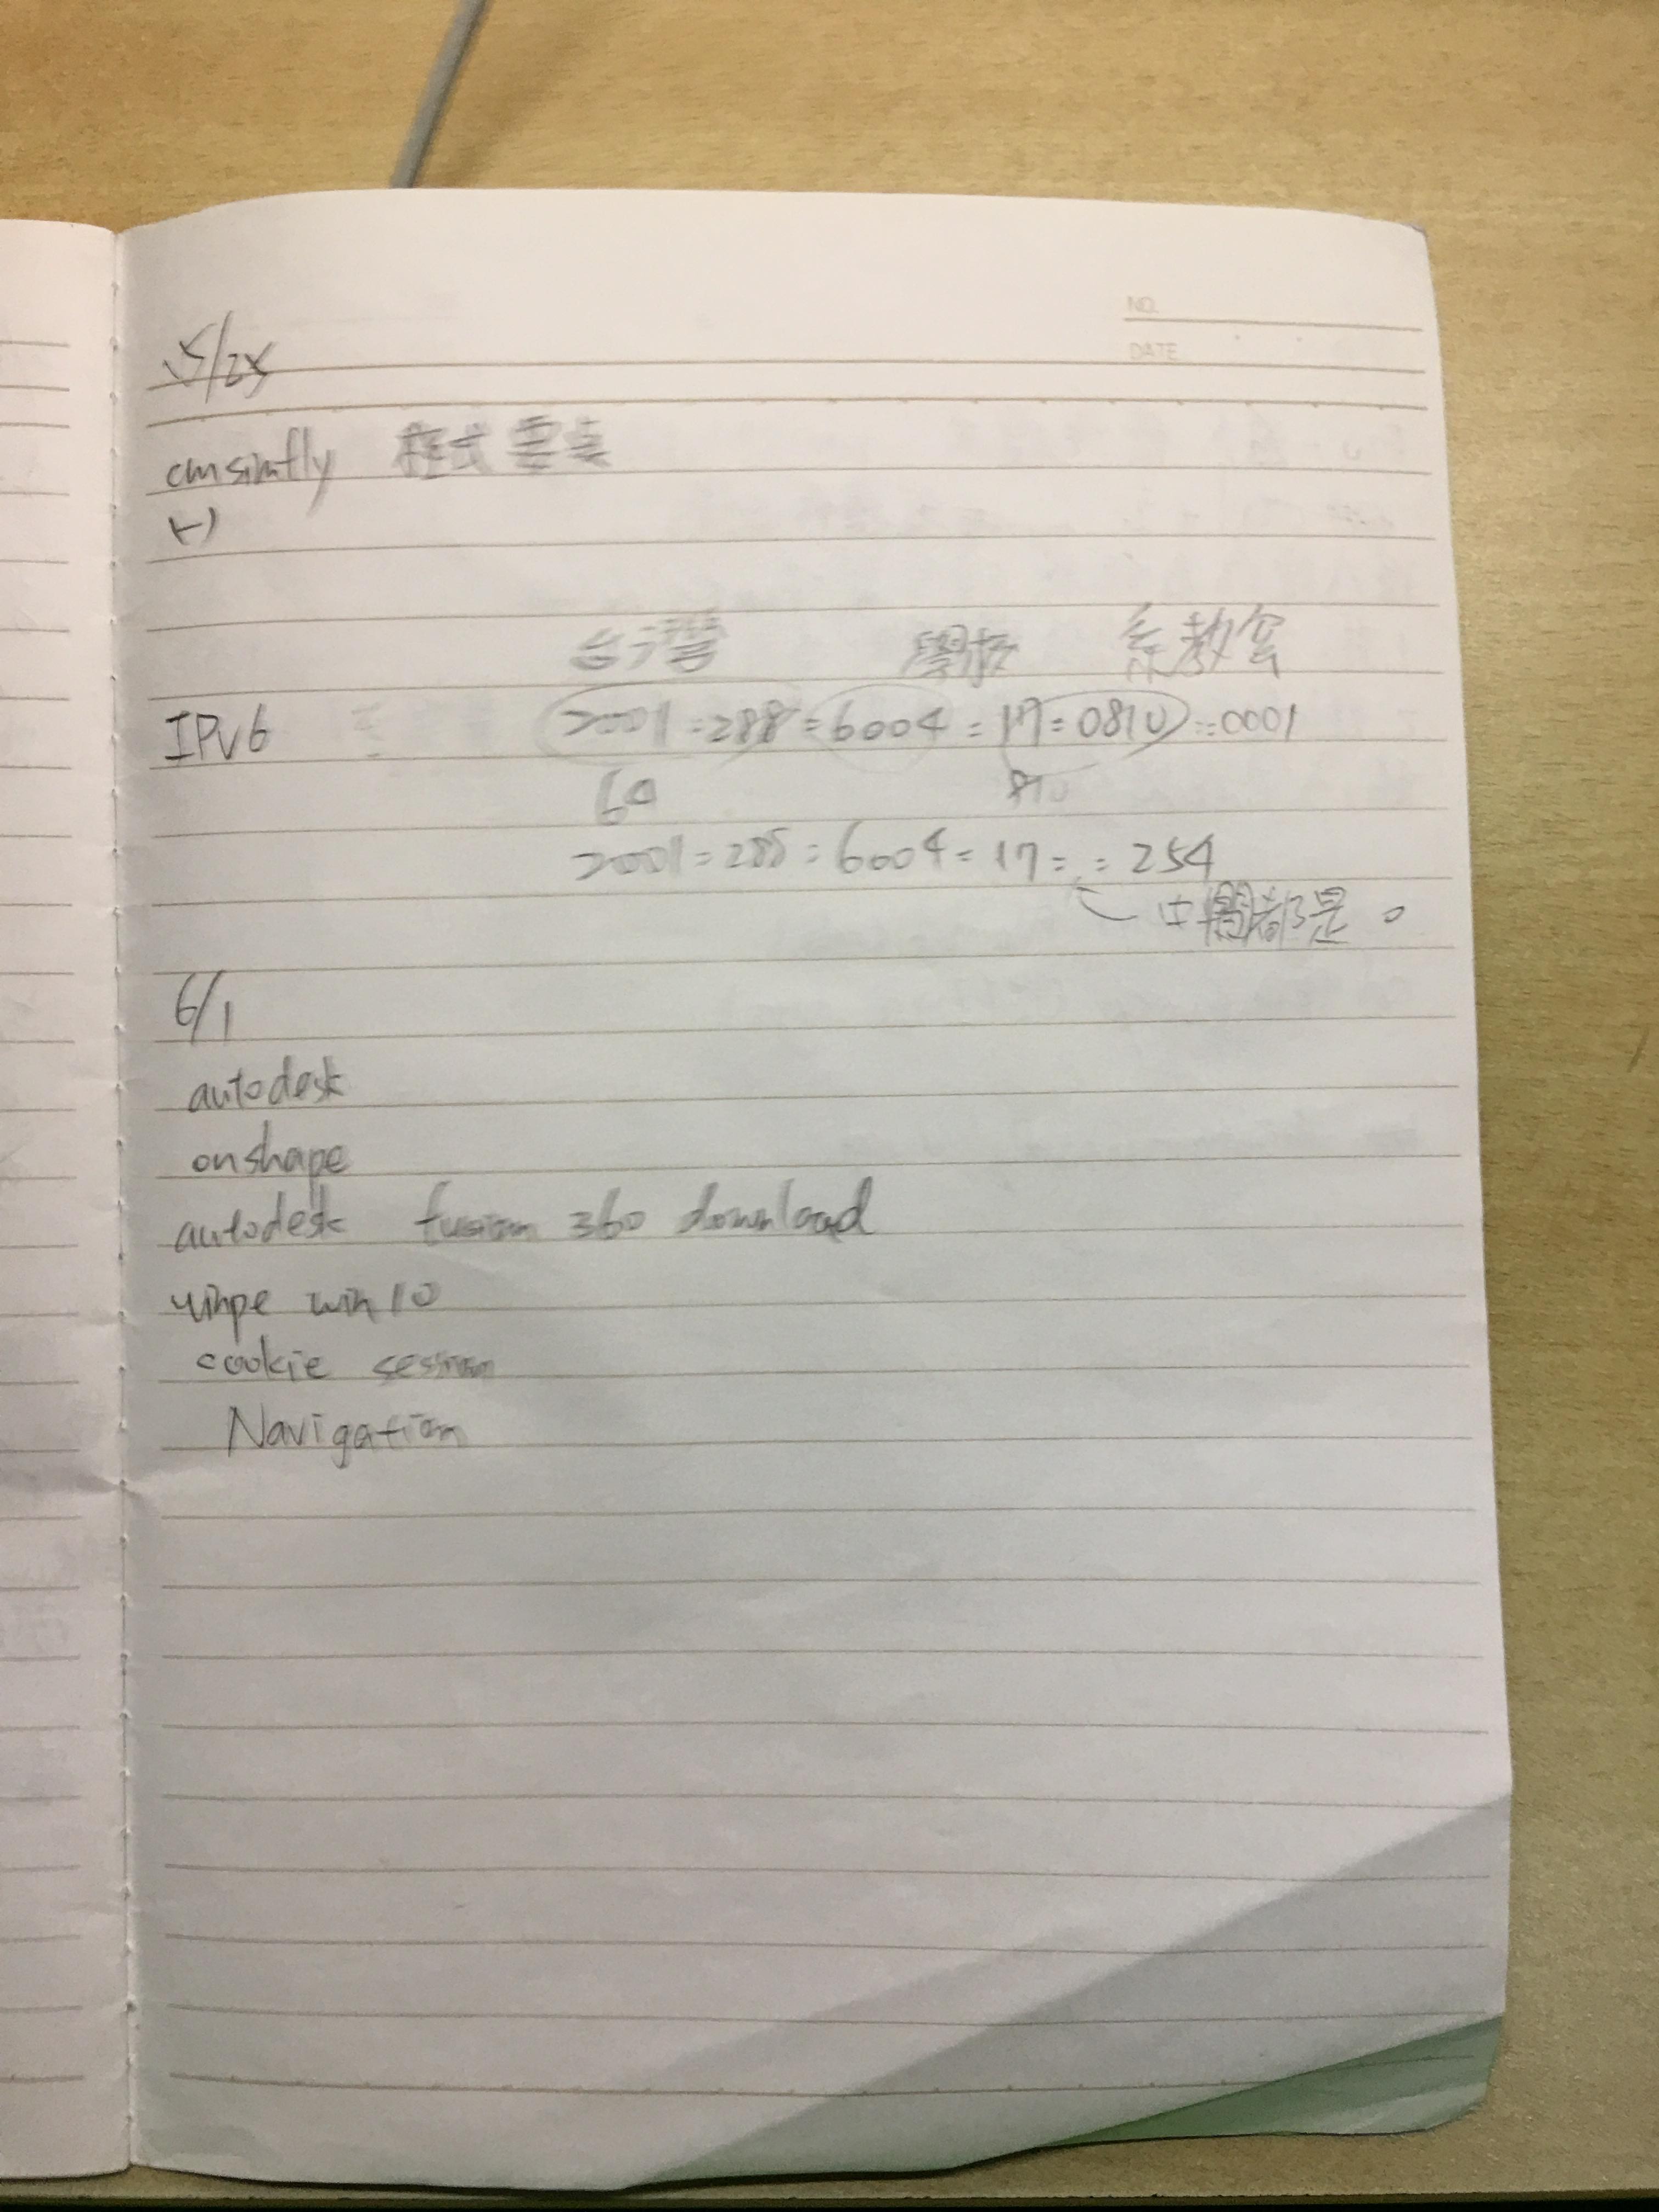 NO.
DATE
5/25
cmsimfly 程式要點
台灣 學校 系教室
IPv6 2001:288:6004:17:0810::0001
60 810
2001:288:6004:17::254
中間都是0
6/1
autodesk
onshape
autodesk fusion 360 download
winpe win10
cookie session
Navigation